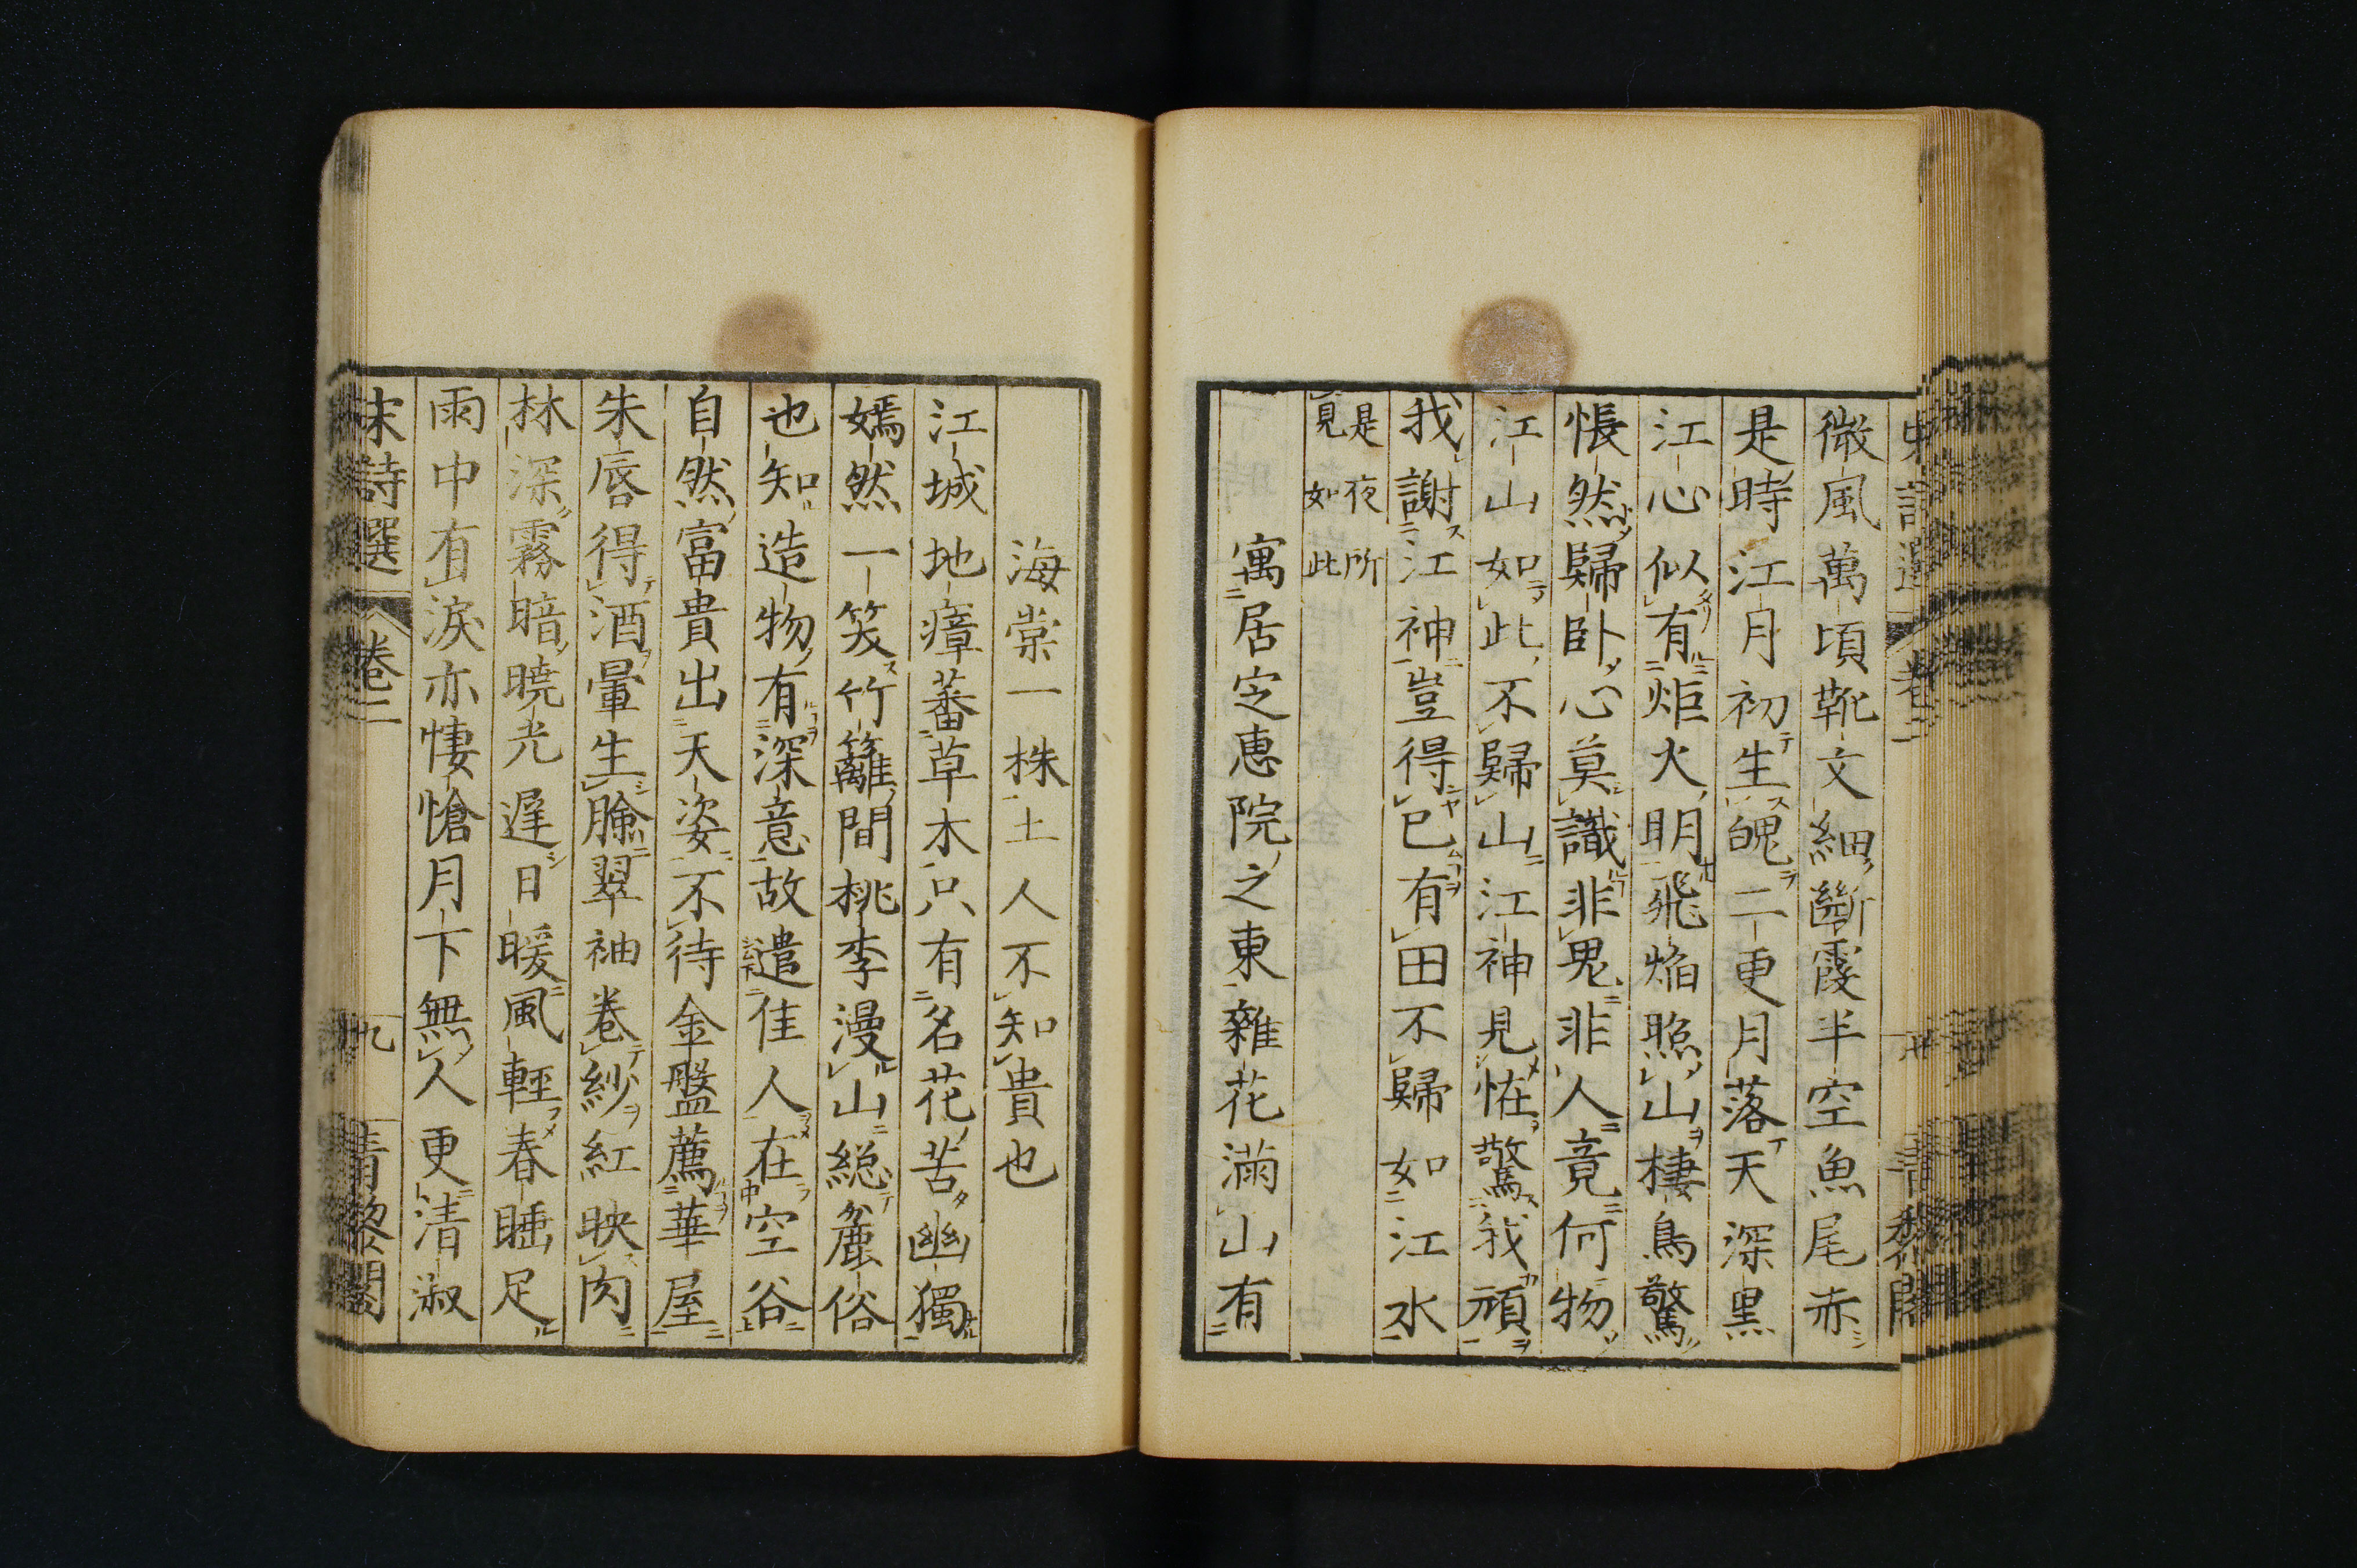 微風萬頃靴文細斷霞半空魚尾赤
是時江月初生魄二更月落天深黒
江心似有炬火明飛焔照山棲鳥驚
悵然歸卧心莫識非鬼非人竟何物
江山如此不歸山江神見恠驚我頑
我謝江神豈得已有田不歸如江水
是夜所
見如此
寓居定惠院之東雜花滿山有
海棠一株土人不知貴也
江城地瘴蕃草木只有名花苦幽獨
嫣然一笑竹籬間桃李漫山総麁俗
也知造物有深意故遣佳人在空谷
自然富貴出天姿不待金盤薦華屋
朱唇得酒暈生臉翠袖卷紗紅映肉
林深霧暗曉光遲日暖風輕春睡足
雨中有淚亦悽愴月下無人更清淑
宋詩選 卷二 九 青黎閣